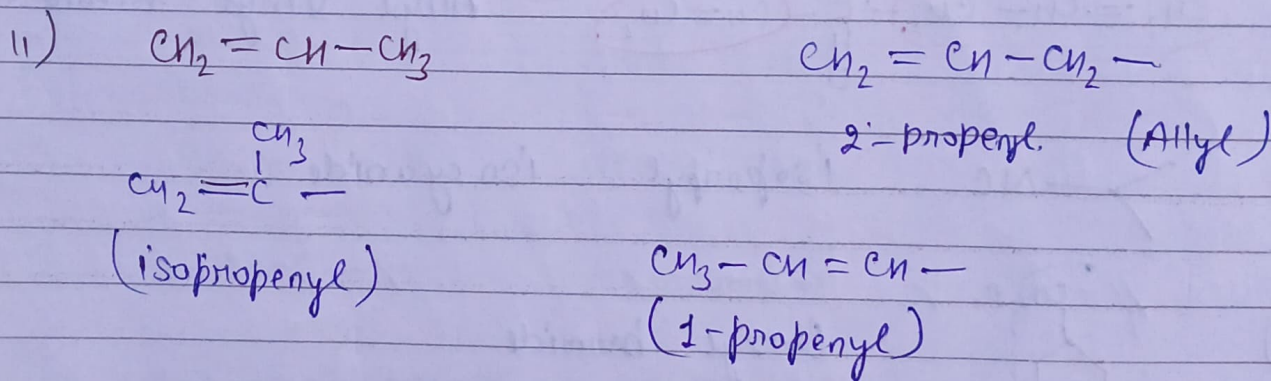 11) CH₂ = CH – CH₃ CH₂ = CH – CH₂ –
2-propenyl. (Allyl)
CH₃
|
CH₂ = C –
(isopropenyl)
CH₃ – CH = CH –
(1-propenyl)